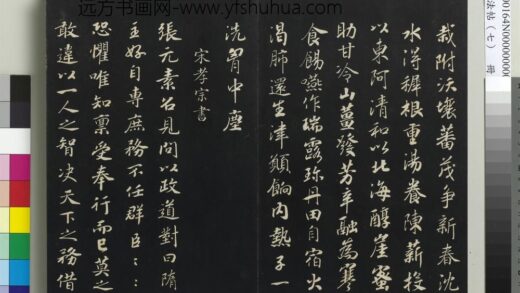 远方书画网-www.yfshuhua.com
栽附沃壤蕃茂爭新春沈
水得穉根重湯養陳薪投
以東阿清和以北海醇崖蜜
助甘冷山薑發芳辛融為寒
食餳嚥作瑞露珍丹田自宿火
渴肺還生津願餉內熱子一
洗胷中塵
宋孝宗書
張元素召見問以政道對曰隋
主好自專庶務不任群臣〻〻
恐懼唯知稟受奉行而已莫之
敢違以一人之智決天下之務借
法帖（七） 冊